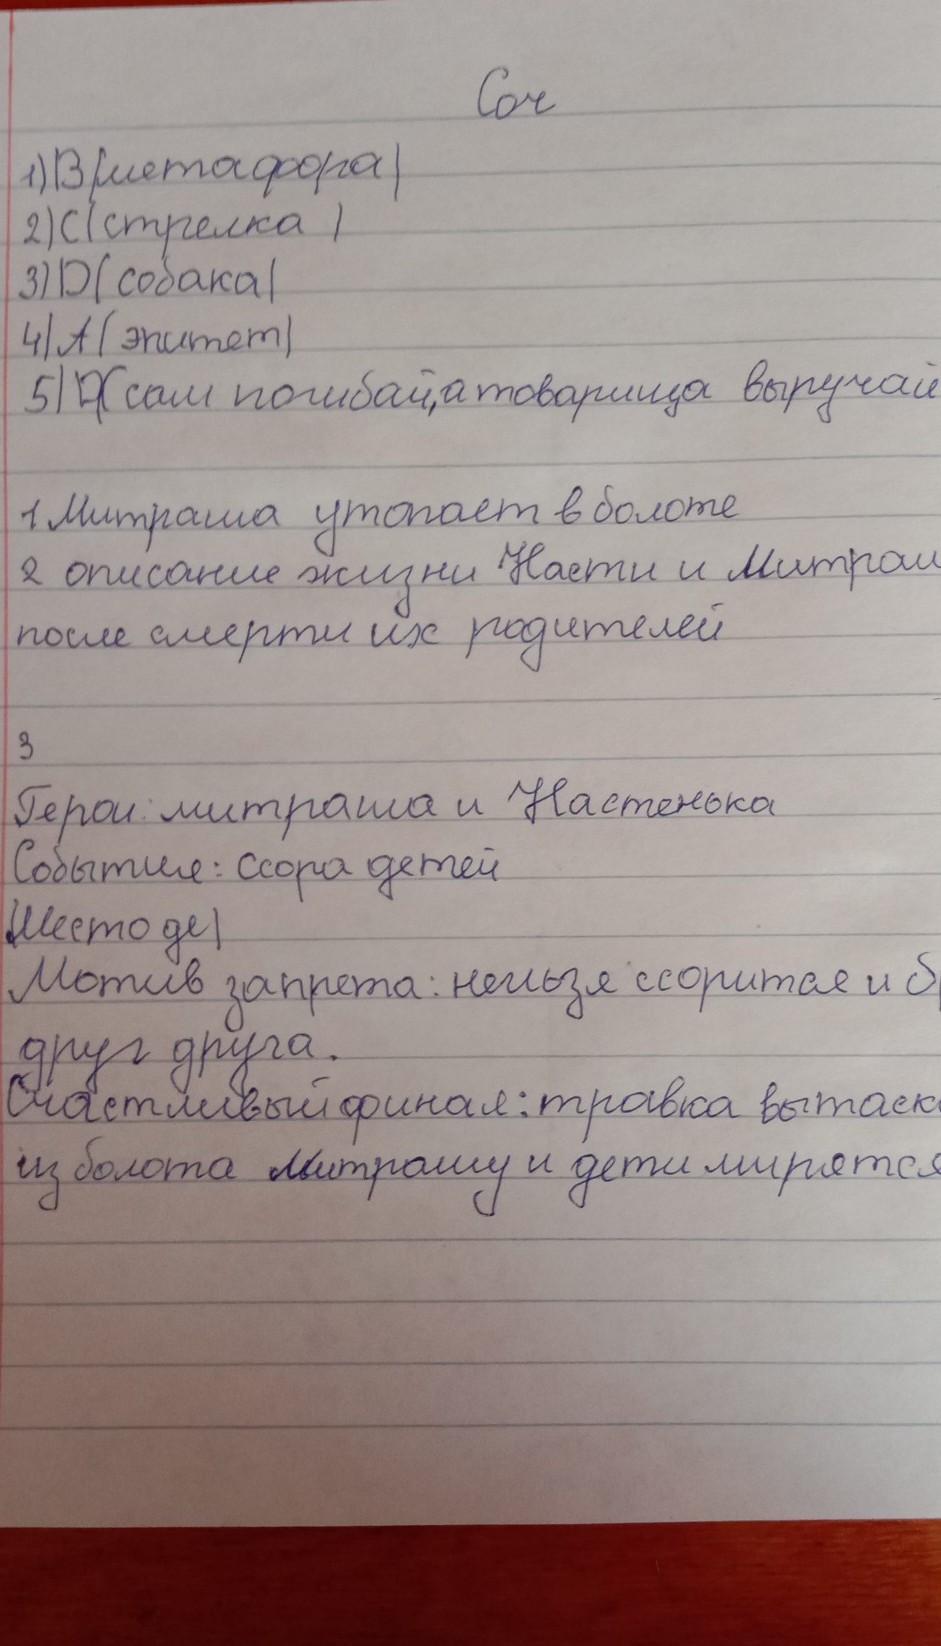 Соч
1) В (метафора)
2) С (стрелка)
3) D (собака)
4) А (эпитет)
5) D (сам погибай, а товарища выручай
1 Митраша утопает в болоте
2 описание жизни Насти и Митраш
после смерти их родителей
3
Герои: митраша и Настенька
События: ссора детей
Место де)
Мотив запрета: нельзя ссорится и бр
друг друга.
Счастливый финал: травка вытаск
из болота Митрашу и дети мирятся